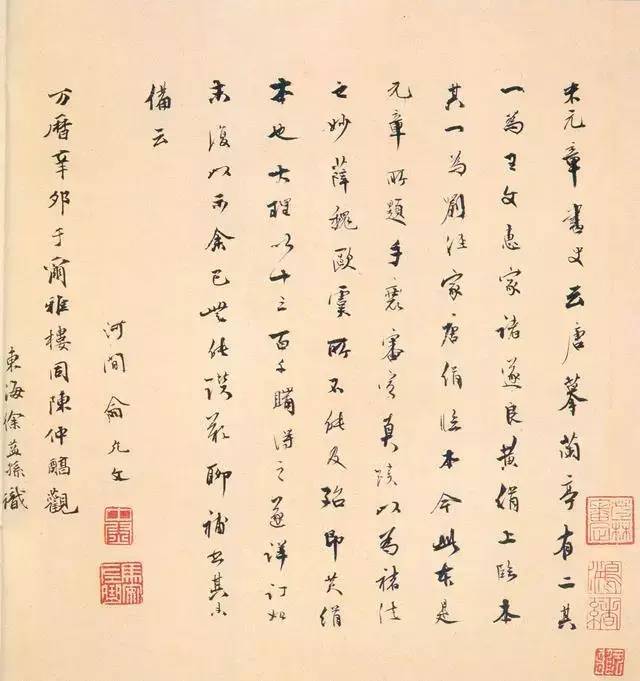 米元章書史云唐摹蘭亭有二其
一為王文惠家諸遂良黃絹上臨本
其一為劉涇家唐絹臨本今此本是
元章所題手裝審定真跡以為褚法
之妙薛魏歐虞所不能及殆即黃絹
本也大理以十三百千購得之遂詳訂始
末復以示余已無能讚歎聊補書其未
備云
河間俞允文
万曆辛卯于爾雅樓同陳仲醇觀
東海徐益孫識